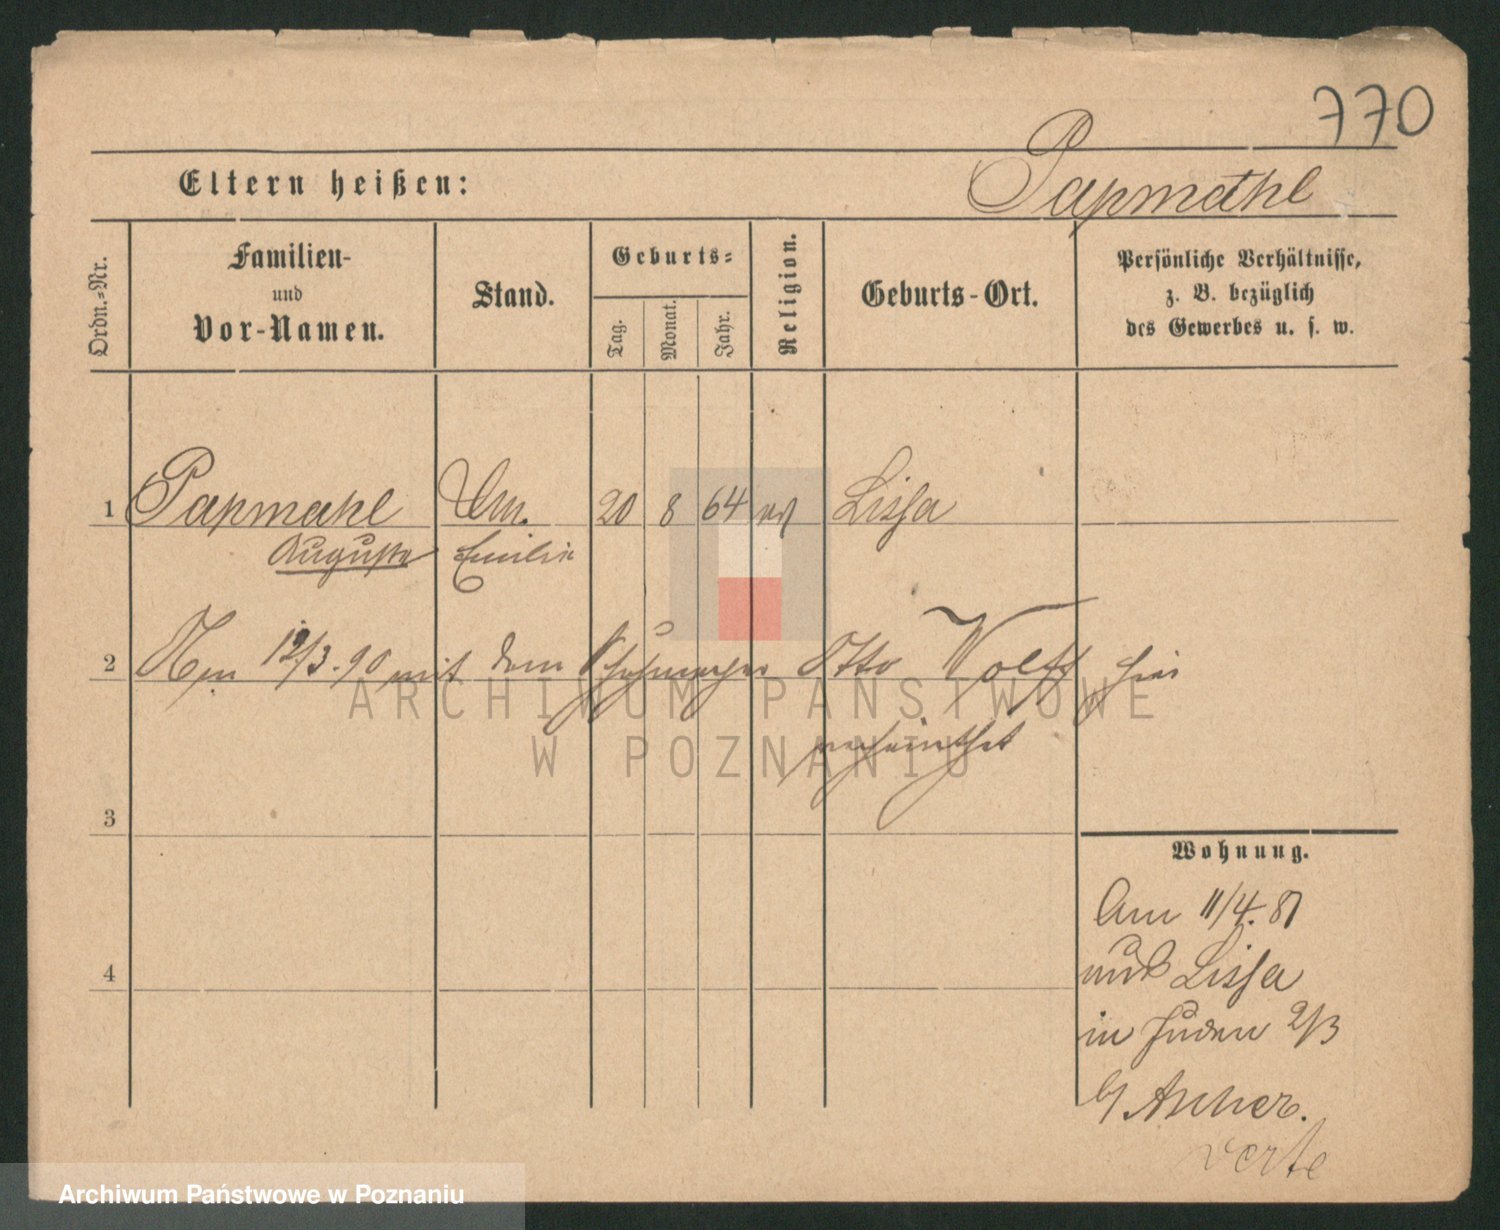 770
Eltern heißen:
Papmahl
Ordn.-Nr.
Familien-
und
Vor-Namen.
Stand.
Geburts-
Tag.
Monat.
Jahr.
Religion.
Geburts-Ort.
Persönliche Verhältnisse,
z. B. bezüglich
des Gewerbes u. s. w.
1 Papmahl 20 8 64 Lissa
Auguste Emilie
2 12/3.90 mit dem Schuhmacher Otto Wolff hier
verheirathet
ARCHIWUM PAŃSTWOWE
W POZNANIU
3
Wohnung.
Am 11/4.87
aus Lissa
4
in Juden 2/3
b/ Ascher.
verte
Archiwum Państwowe w Poznaniu